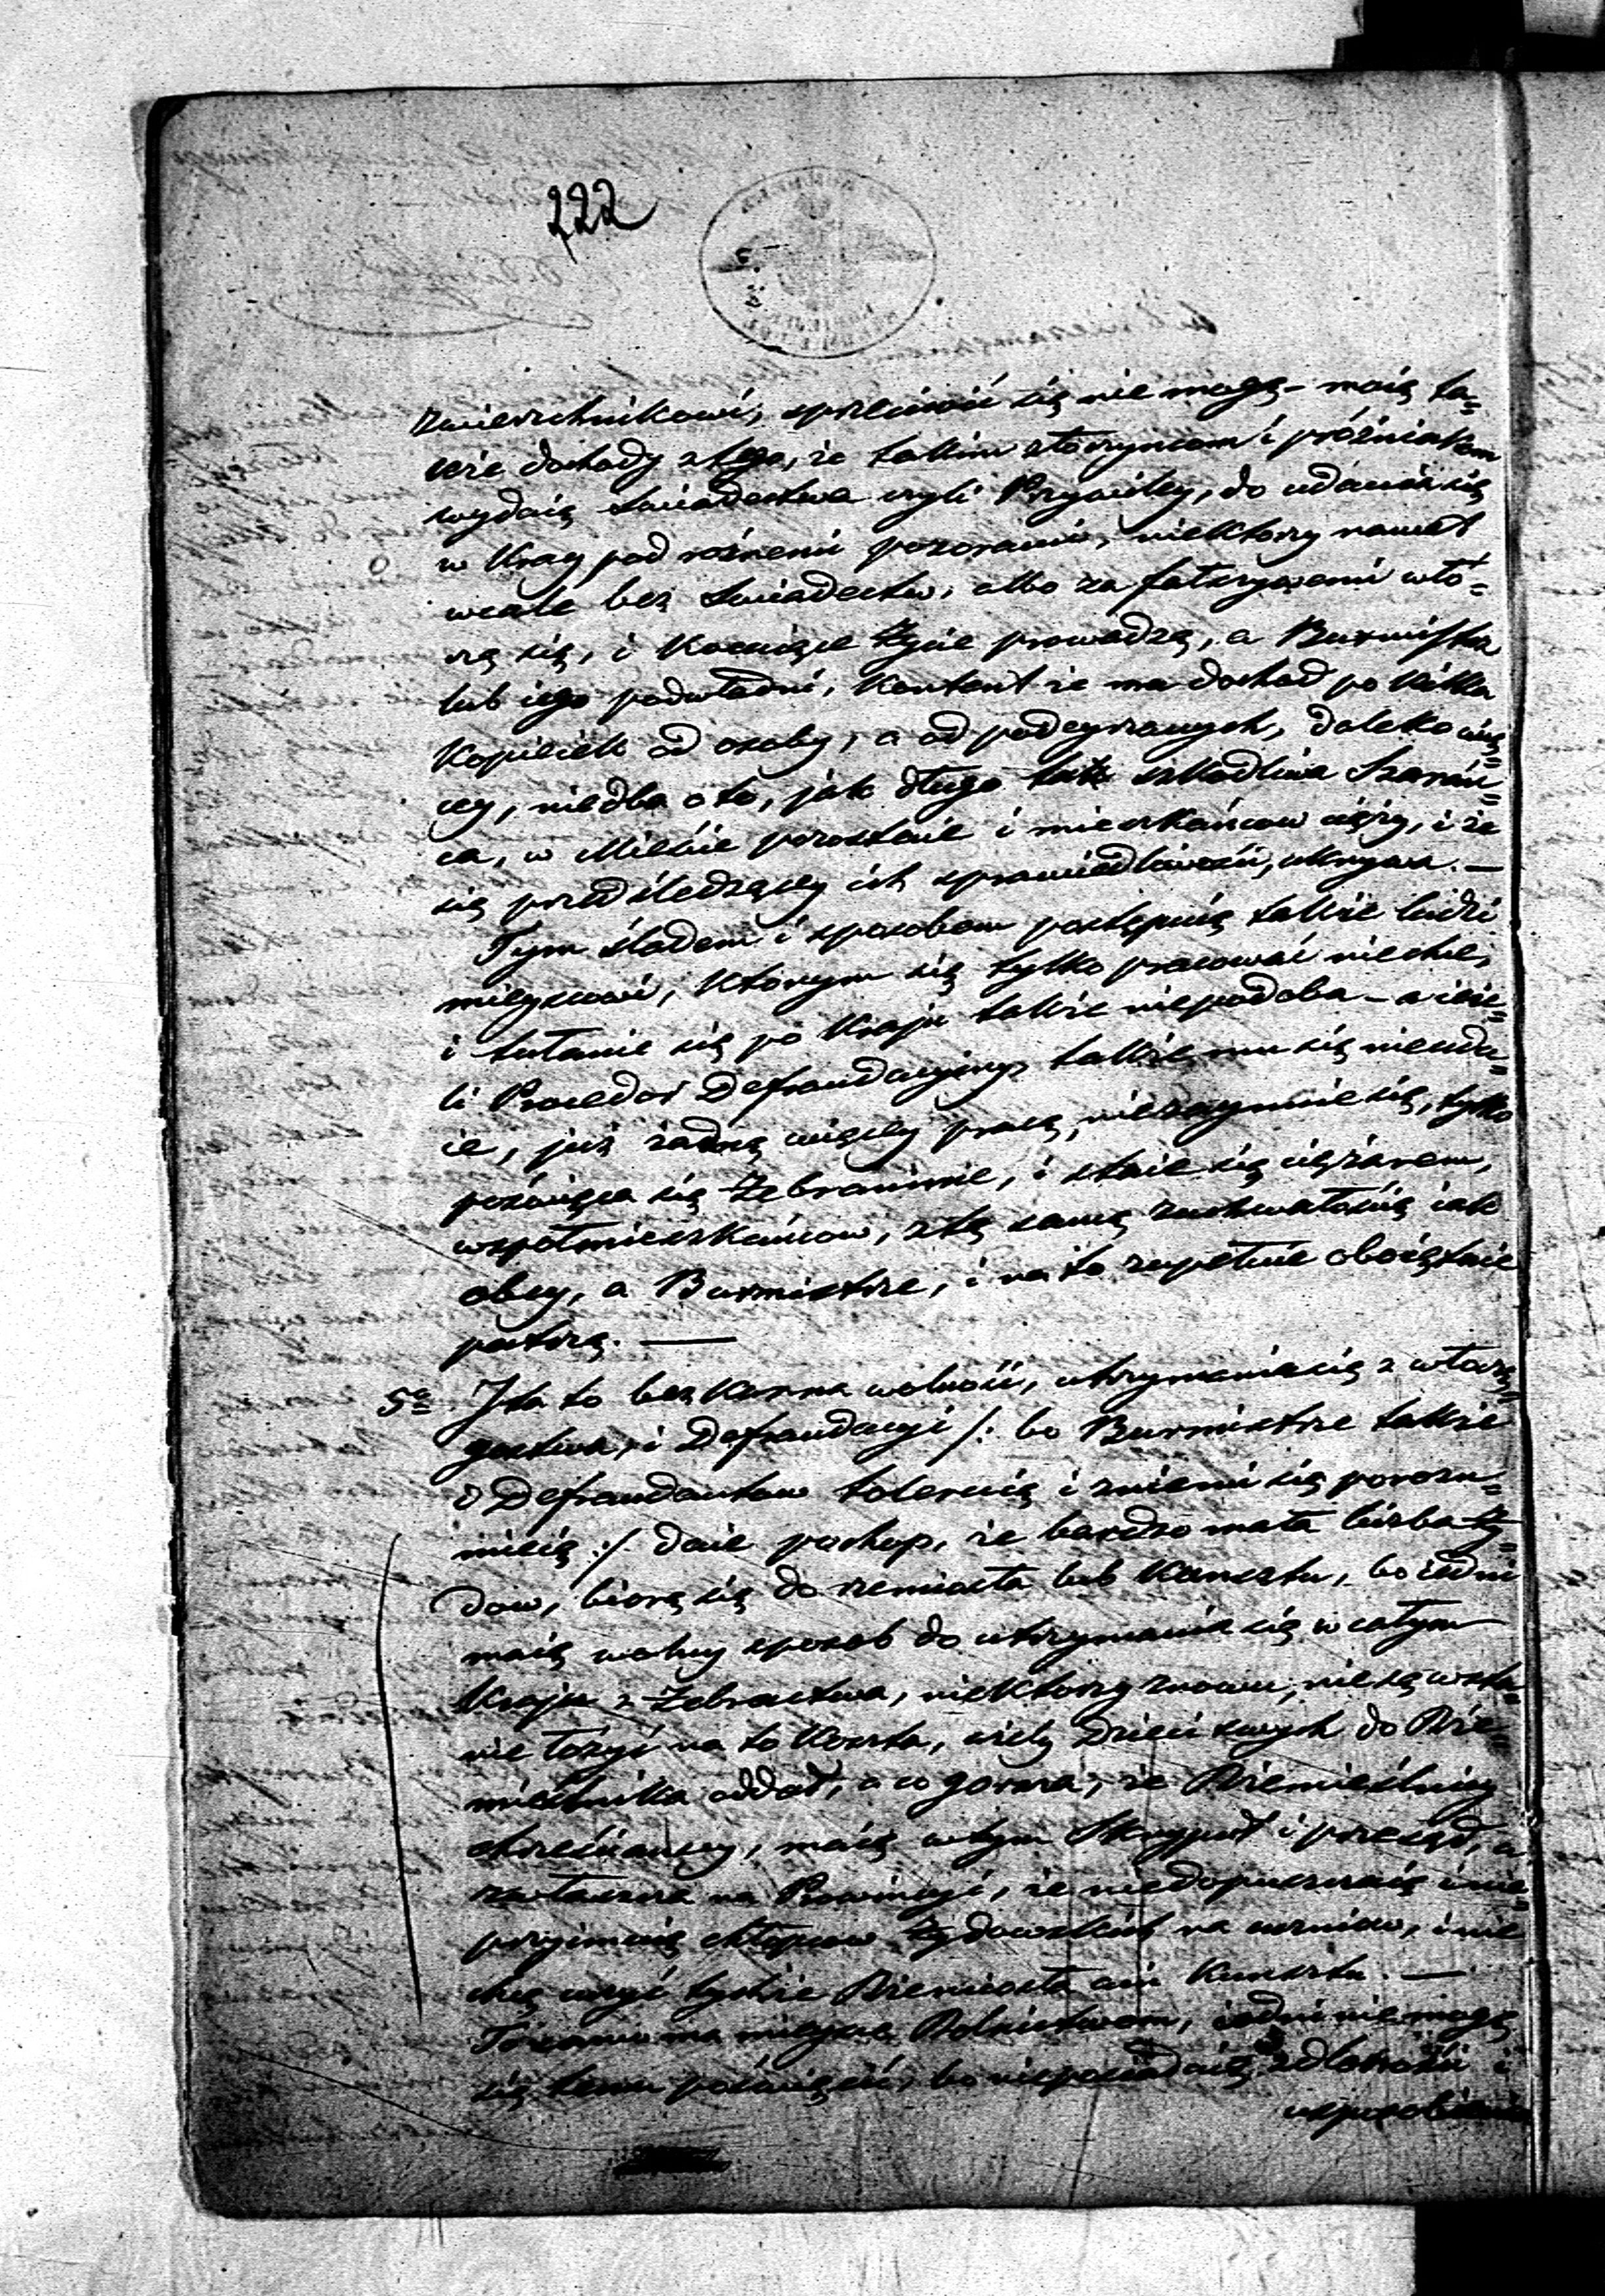 222
zwierzchnikowi, sprzeciwić się nie mogą – maią ta=
kże dochody z tego, że takim złoczyńcom i próźniakom
wydaią świadectwa czyli Przywiley, do udania się
w Kray pod rożnemi pozorami, niektorzy nawet
wcale bez świadectw, albo za fałszywemi włó=
czą się, i koczuiące życie prowadzą, a Burmistrz
lub iego podwładni, kontent że ma dochod po kilka
kopieiek od osoby, a od podeyrzanych, daleko wię=
cey, niedba o to, jak długo tak szkodliwa szarań=
cza, w Mieście pozostaie i mieszkańcow ciąży, i że
się przed śledzącey ich sprawiedliwości, ukrywa. —
Tym śladem i sposobem postępuią także ludzi
mieyscowi, ktorym się tylko pracować niechce,
i tułanie się po Kraju także niepodoba – a ieże=
li Proceder Defraudacyiny, także mu się nieuda=
ie, już żadną więcey pracą, niezaymuie się, tylko
poświęca się żebraninie, i staie się ciężarem,
wspołmieszkańcow, z tą samą zuchwałością iak
obcy, a Burmistrze, i na to zupełnie oboiętnie
patrzą. —
5e Jta to bezkarna wolność, utrzymania się z włoczę=
gostwa, i Defraudacyi /: bo Burmistrze także
i Defraudantow toleruią i zniemi się porozu=
mieią :/ daie pochop, że bardzo mała liczba Ży=
dow, biorą się do rzemiosła lub kunsztu, bo iedni
maią wolny sposob do utrzymania się w całym
Kraju z żebractwa, niektorzy znowu, nie są w sta=
nie łożyć na to koszta, żeby dzieci swych do Rze=
mieślnika oddać, a co gorsza, że Rzemieślnicy
chrześciańscy, maią w tym skrypuł i przesąd, a
zwłaszcza na Prowincyi, że niedopuszczaią i nie
przyimuią chłopcow Żydowskich na uczniow, i nie
chcą uczyć tychże Rzemiosła ani kunsztu. —
Toż samo ma mieysce Rolnictwem, iedni nie mogą
się temu poświęcić, bo nieposiadaią zdolności i
usposobienia